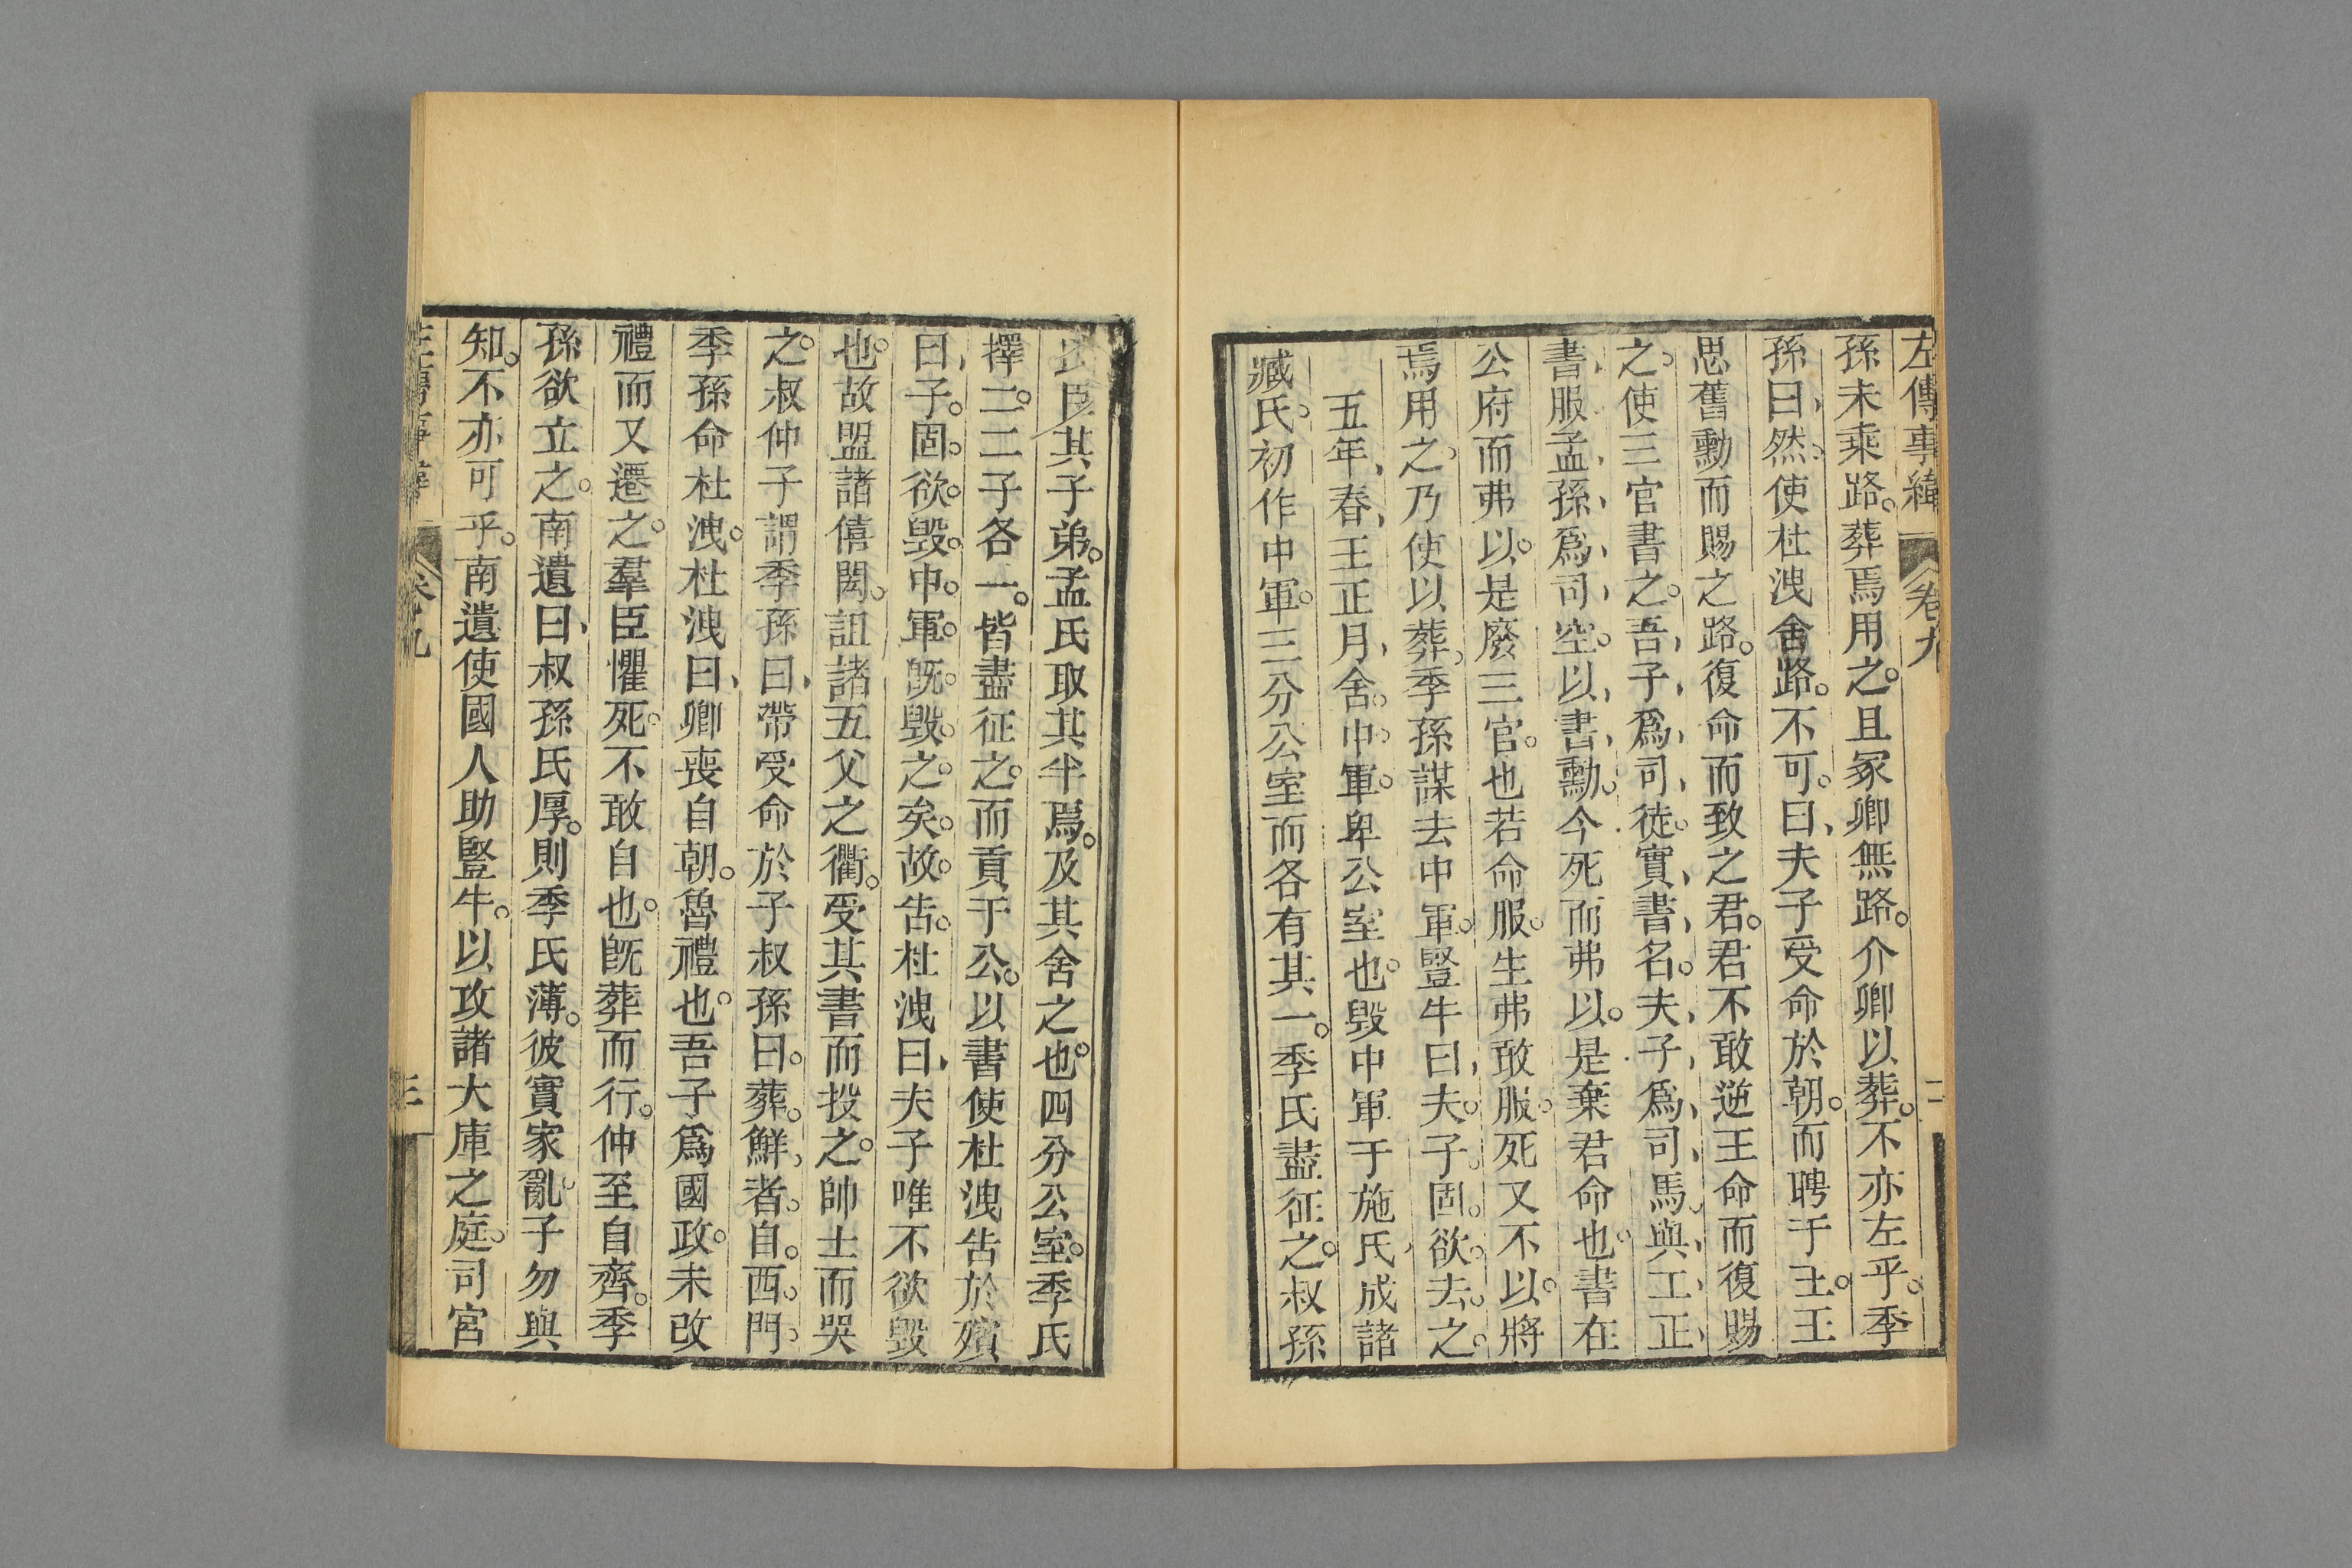 左傳事緯 卷九 二
孫未乘路葬焉用之且冢卿無路介卿以葬不亦左乎季
孫曰然使杜洩舍路不可曰夫子受命於朝而聘于王王
思舊勳而賜之路復命而致之君君不敢逆王命而復賜
之使三官書之吾子爲司徒實書名夫子爲司馬與工正
書服孟孫爲司空以書勳今死而弗以是棄君命也書在
公府而弗以是廢三官也若命服生弗敢服死又不以將
焉用之乃使以葬季孫謀去中軍豎牛曰夫子固欲去之
五年春王正月舍中軍卑公室也毀中軍于施氏成諸
臧氏初作中軍三分公室而各有其一季氏盡征之叔孫
氏臣其子弟孟氏取其半焉及其舍之也四分公室季氏
擇二二子各一皆盡征之而貢于公以書使杜洩告於殯
曰子固欲毀中軍既毀之矣故告杜洩曰夫子唯不欲毀
也故盟諸僖閎詛諸五父之衢受其書而投之帥士而哭
之叔仲子謂季孫曰帶受命於子叔孫曰葬鮮者自西門
季孫命杜洩杜洩曰卿喪自朝魯禮也吾子爲國政未改
禮而又遷之羣臣懼死不敢自也旣葬而行仲至自齊季
孫欲立之南遺曰叔孫氏厚則季氏薄彼實家亂子勿與
知不亦可乎南遺使國人助豎牛以攻諸大庫之庭司宮
卷九 三